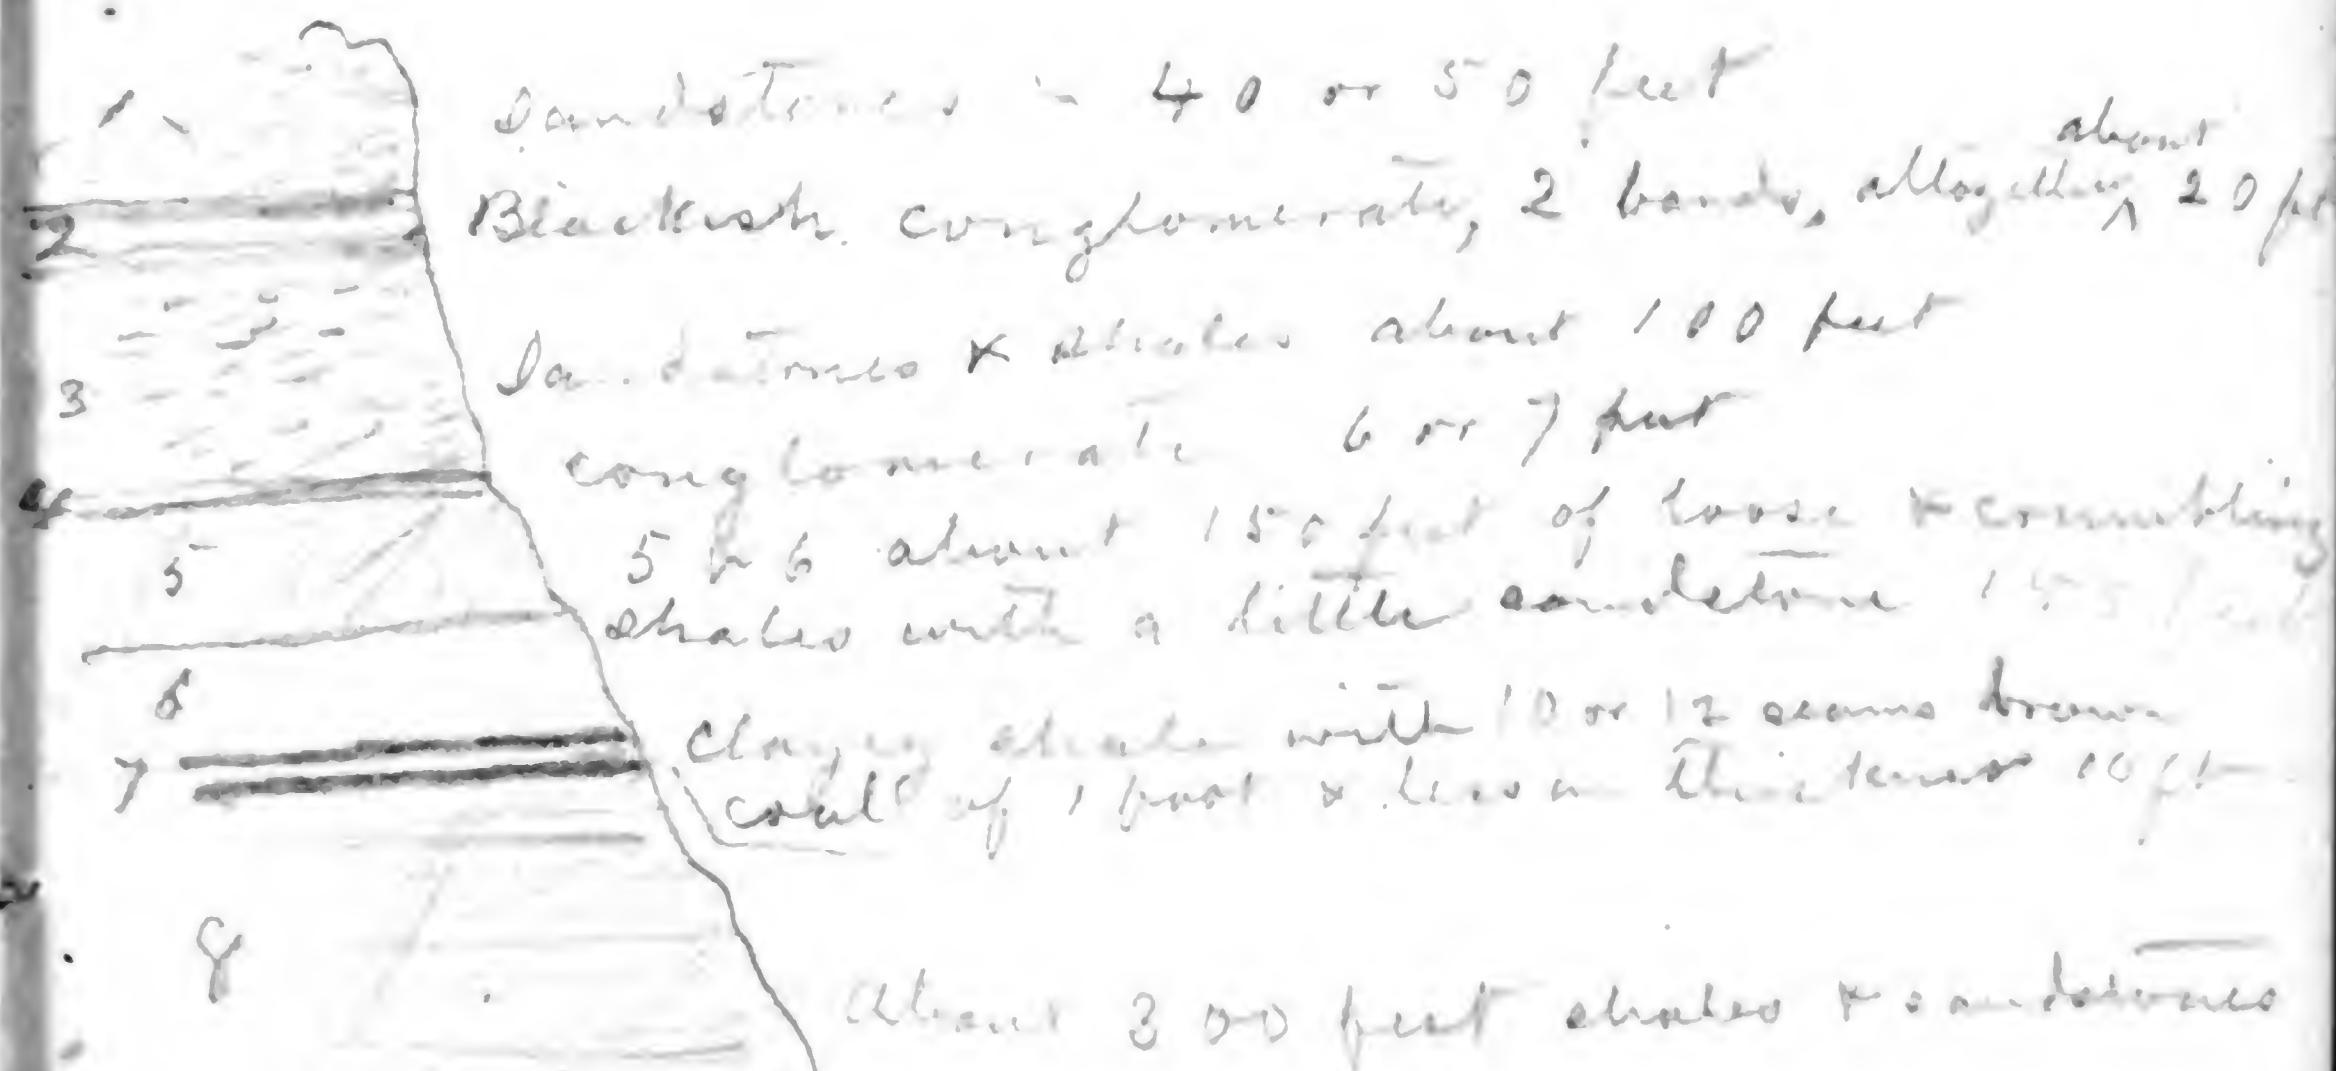 1 Sandstones - 40 or 50 feet
about
2 Blackish conglomerate, 2 bands, altogether ^ 20 ft
3 Sandstones & shales about 100 feet
4 conglomerate 6 or 7 feet
5 5 & 6 about 150 feet of loose & crumbling
shales with a little sandstone
6
7 Clayey shale with 10 or 12 seams brown
coal of 1 foot & less in thickness 10 ft
8 About 300 feet shales & sandstones